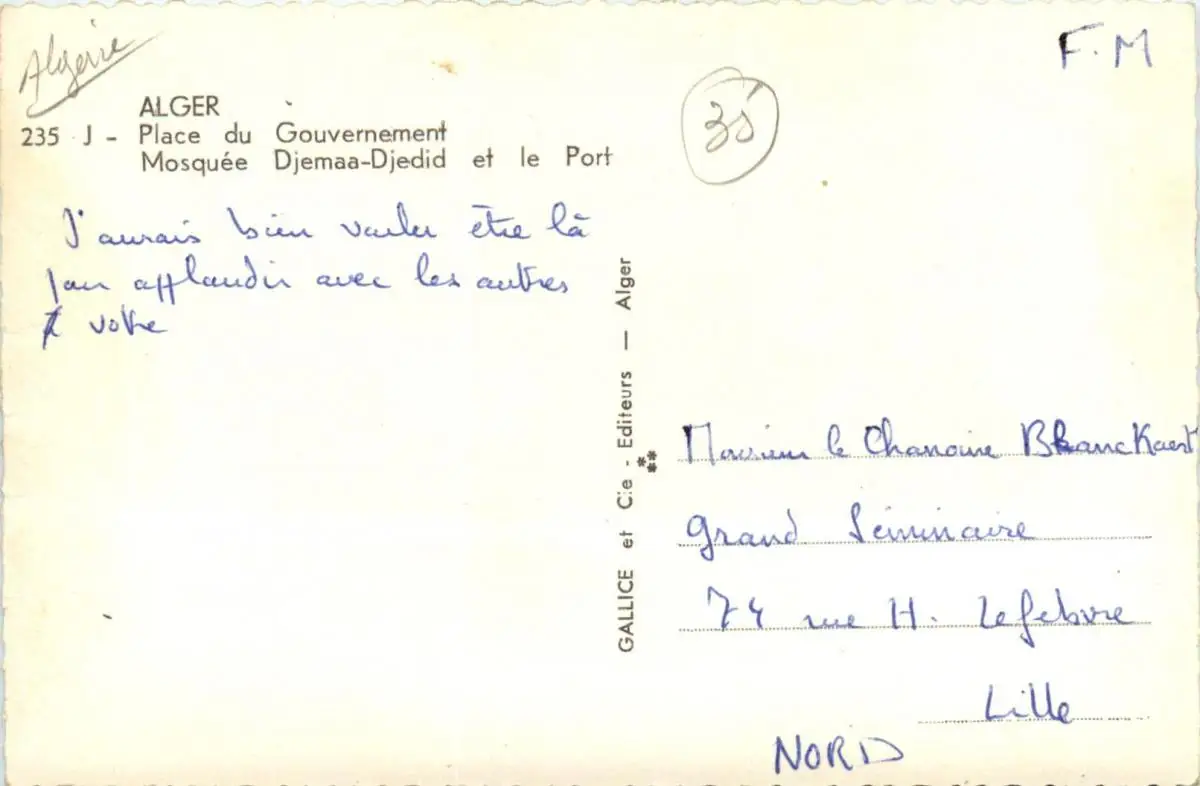 Algérie
F.M
35
ALGER
235 J - Place du Gouvernement
Mosquée Djemaa-Djedid et le Port
J'aurais bien vouler être là
pour applaudir avec les autres
votre
GALLICE et Cie - Editeurs — Alger
Monsieur le Chanoine Blanckaert
Grand Séminaire
74 rue H. Lefebvre
Lille
NORD